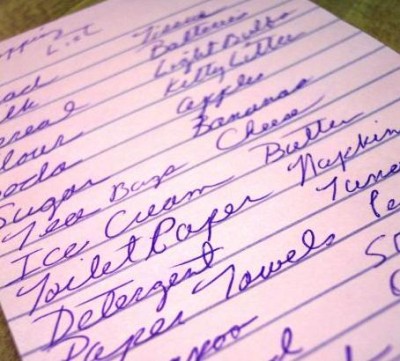 pping
List
ead
lk
ereal
lour
oda
Sugar
Tea Bags
Ice Cream
Toilet Paper
Detergent
Paper Towels
poo
Tissue
Batteries
Light Bulbs
Kitty Litter
apples
Bananas
Cheese
Butter
Napkin